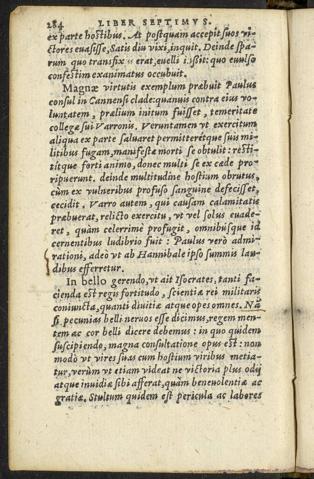 284 LIBER SEPTIMVS.
ex parte hostibus. At postquam accepit suos vi-
ctores euasisse, Satis diu vixi, inquit. Deinde spa-
rum quo transfix erat, euelli ißit: quo euulso
confestim exanimatus occubuit.
Magnæ virtutis exemplum præbuit Paulus
consul in Cannensi clade: quanuis contra eius vo-
luntatem, prælium initum fuisset, temeritate
collegæ sui Varronis. Veruntamen vt exercitum
aliqua ex parte saluaret permitteretque suis mi-
litibus fugam, manifestæ morti se obtulit: resti-
titque forti animo, donec multi se ex cæde pro-
ripuerunt. deinde multitudine hostium obrutus,
cùm ex vulneribus profuso sanguine defecisset,
cecidit. Varro autem, qui causam calamitatis
præbuerat, relicto exercitu, vt vel solus euade-
ret, quàm celerrimè profugit, omnibúsque id
cernentibus ludibrio fuit: Paulus verò admi-
rationi, adeò vt ab Hannibale ipso summis lau-
dibus efferretur.
In bello gerendo, vt ait Isocrates, tanti fa-
cienda est regis fortitudo, scientiæ rei militaris
coniuncta, quanti diuitiæ atque opes omnes. Nā
si pecunias belli neruos esse dicimus, regem men-
tem ac cor belli dicere debemus: in quo quidem
suscipiendo, magna consultatione opus est: non
modò vt vires suas cum hostium viribus metia-
tur, verùm vt etiam videat ne victoria plus odij
atque inuidiæ sibi afferat, quàm beneuolentiæ ac
gratiæ. Stultum quidem est pericula ac labores